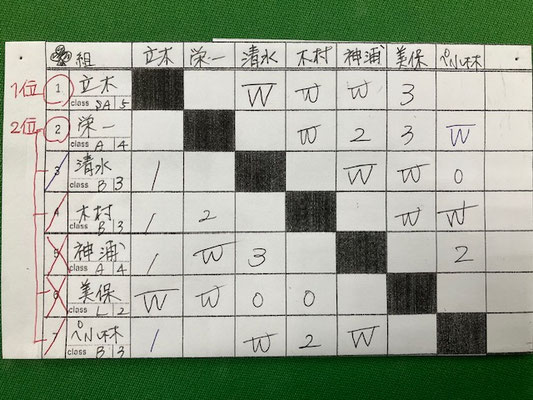 組 立木 栄一 清水 木村 神浦 美保 ペ小林
1位 1 立木 W W W 3
class SA 5
2位 2 栄一 W 2 3 W
class A 4
3 清水 1 W W 0
class B 3
4 木村 1 2 W W
class B 3
5 神浦 1 W 3 2
class A 4
6 美保 W W 0 0
class L 2
7 ペ小林 1 W 2 W
class B 3